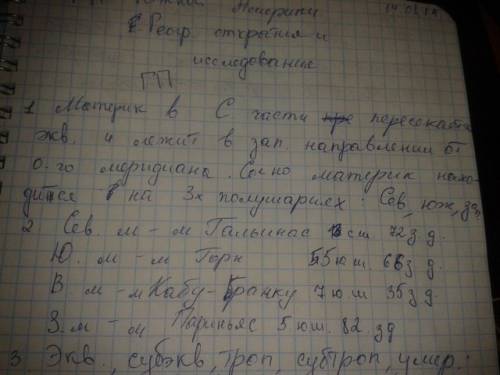 ГП Южной Америки 14.01.14
Геогр. открытия и
исследование
ГП
1 Материк в С части пересекается
экв. и лежит в зап. направлении от
0-го меридиана. Сам материк нахо-
дится на 3х полушариях: Сев, юж, зап
2 Сев. м - м Гальинас 13 сш. 72 з д.
Ю. м - м Горн 55 ю ш. 66 з д.
В м - м Кабу-Бранку 7 ю ш 35 з д.
З. м - м Париньяс 5 ю ш. 82. зд
3 Экв., субэкв, троп, субтроп, умер.